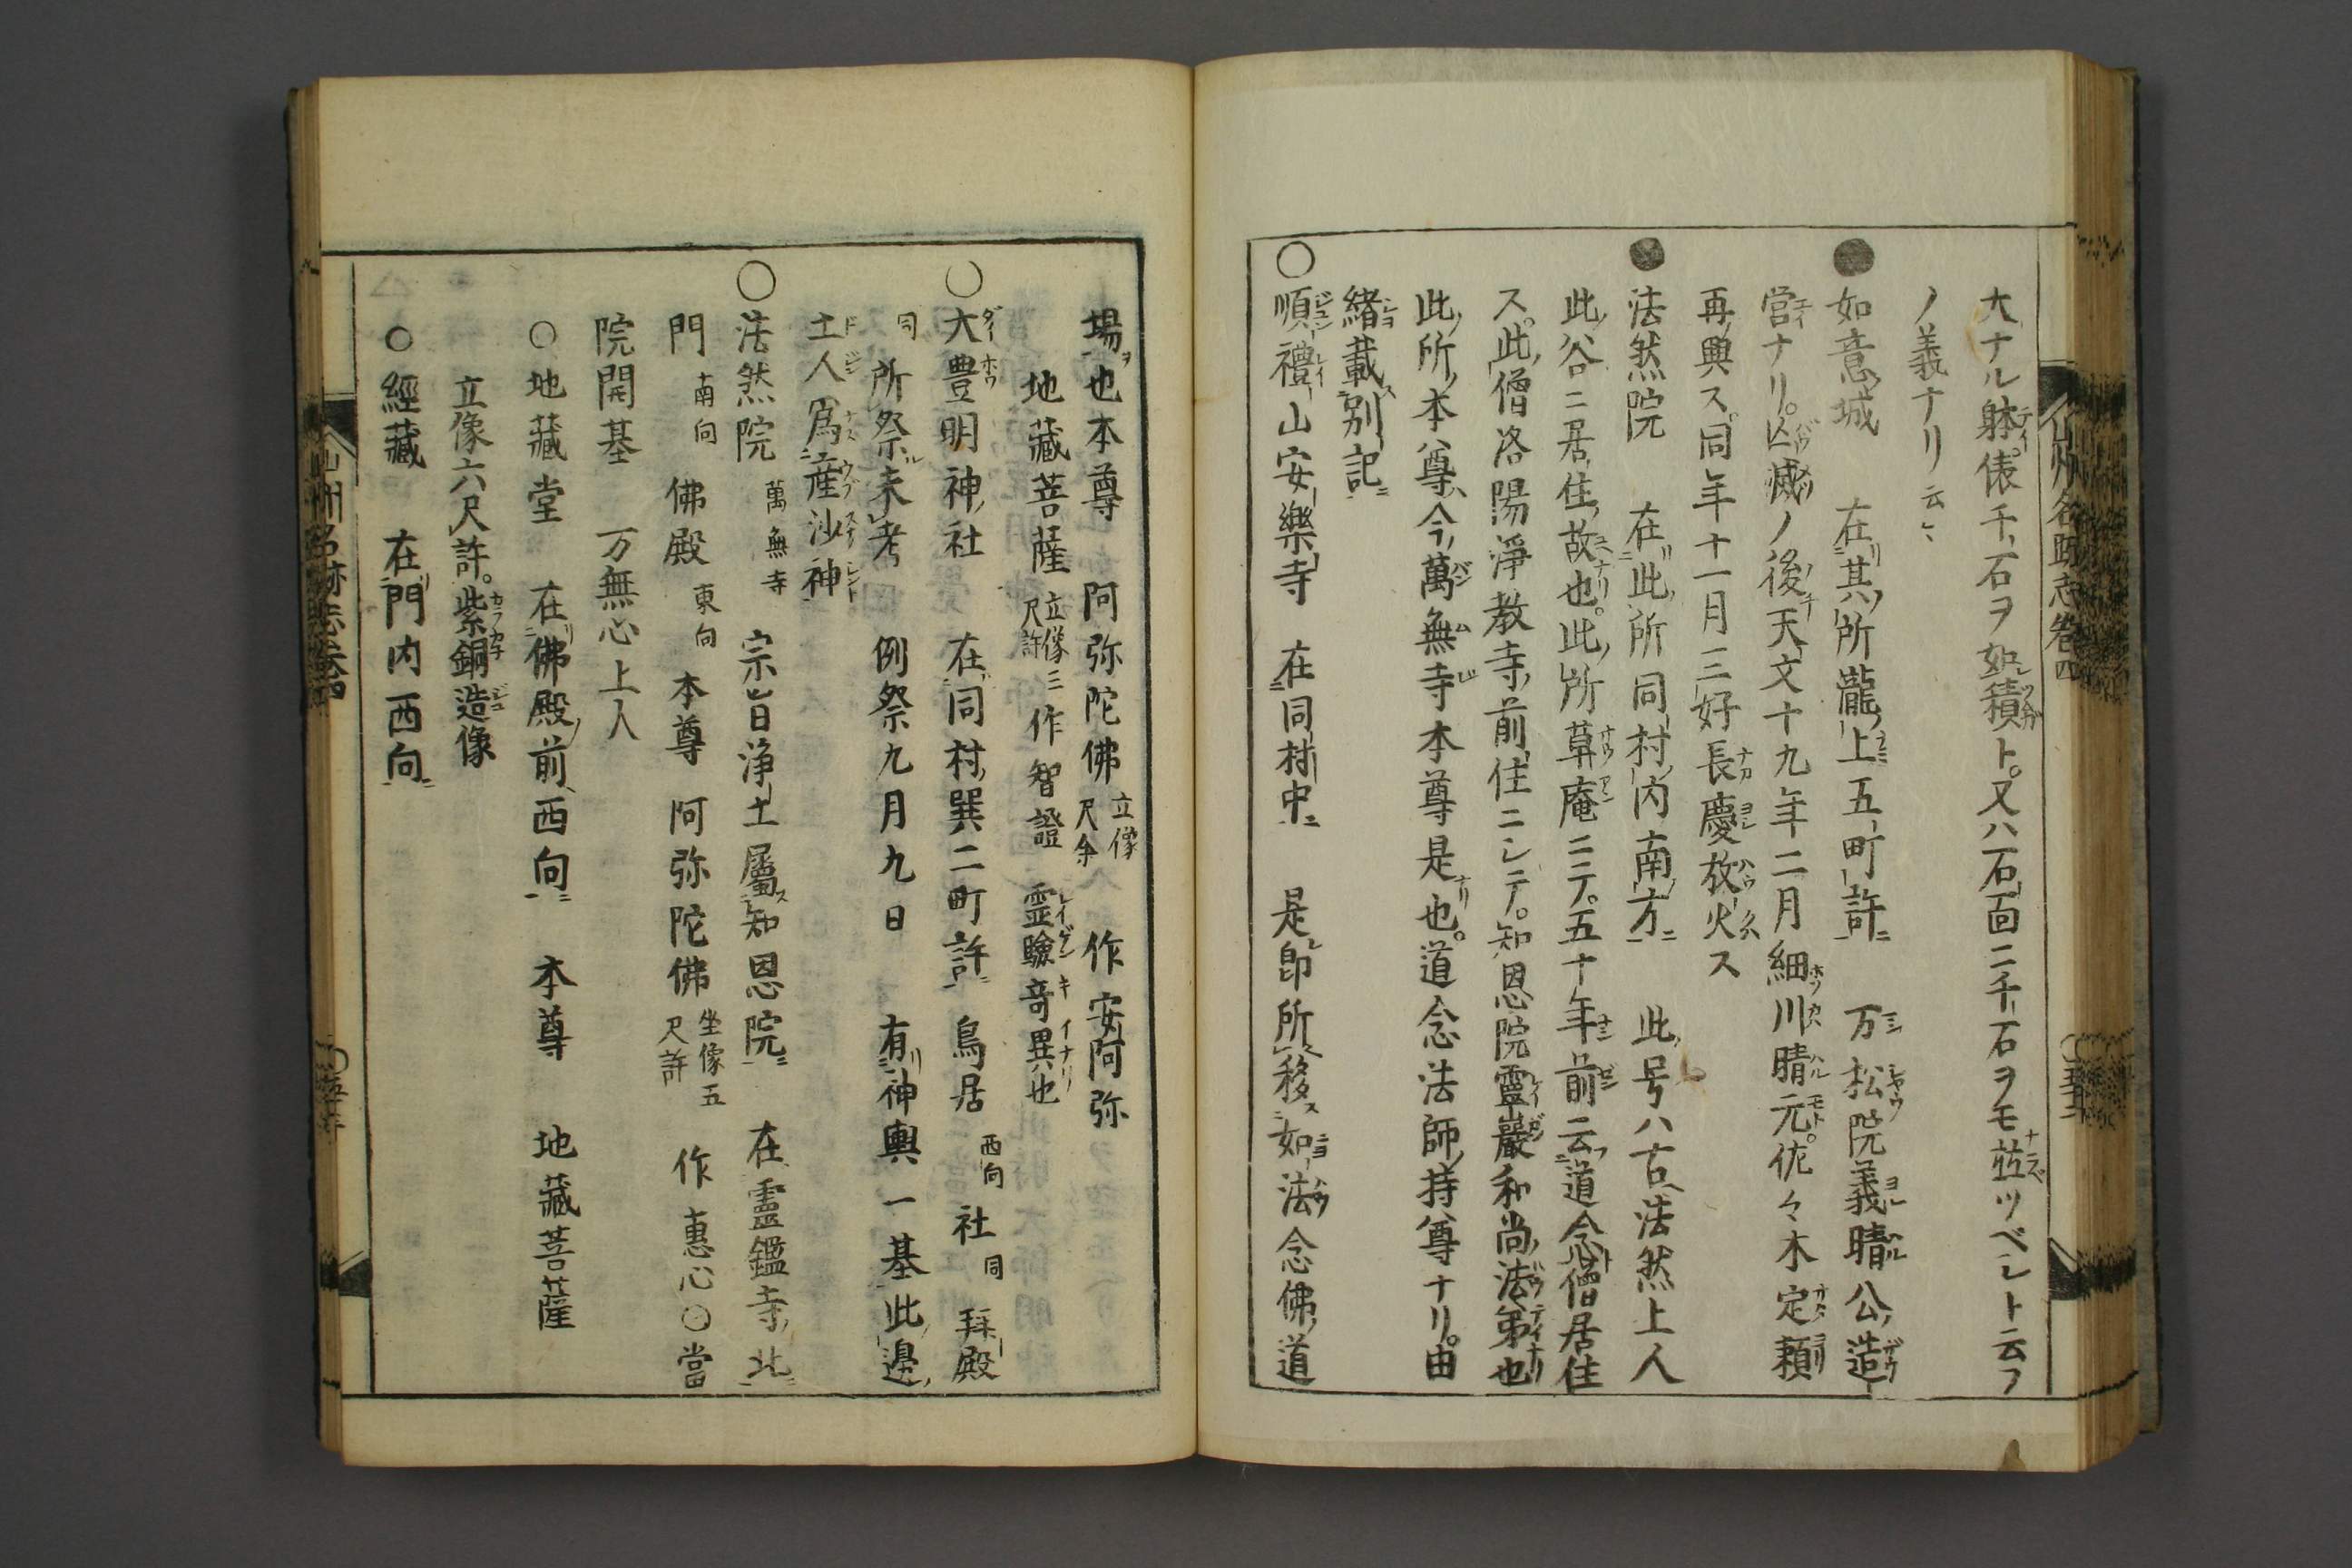 大ナル躰俵千石ヲ如積ト。又ハ石面ニ千石ヲモ並ツベシト云フ
ノ義ナリ云々
●如意城 在其所瀧上五町許 万松院義晴公造
営ナリ。亡滅ノ後天文十九年二月細川晴元。佐々木定頼
再興ス。同年十一月三好長慶放火ス
●法然院 在此所同村内南方 此号ハ古法然上人
此谷ニ居住故也。此所草庵ニテ。五十年前云道念僧居住
ス。此僧洛陽淨教寺前住ニシテ。知恩院靈巖和尚法弟也
此所本尊今萬無寺本尊是也。道念法師持尊ナリ。由
緒載別記
○順禮山安樂寺 在同村中 是即所移如法念佛道
場也本尊 阿弥陀佛 立像尺余 作安阿弥
地藏菩薩 立像三尺許 作智證 霊驗竒異也
○大豊明神社 在同村巽二町許 鳥居 西向 社 同 拜殿
同 所祭未考 例祭九月九日 有神輿一基此邉
土人爲産沙神
○法然院 萬無寺 宗旨浄土屬知恩院 在霊鑑寺北
門 南向 佛殿 東向 本尊 阿弥陀佛 坐像五尺許 作惠心○當
院開基 万無心上人
○地藏堂 在佛殿前西向 本尊 地藏菩薩
立像六尺許。紫銅造像
○經藏 在門内西向
山州名跡志卷四